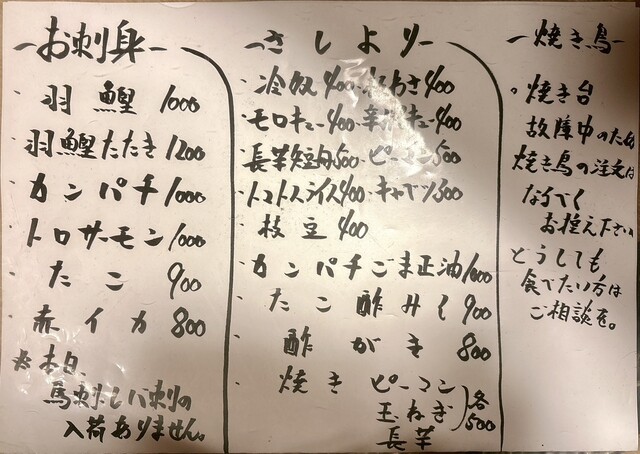 お刺身
・羽鰹 1000
・羽鰹たたき 1200
・カンパチ 1000
・トロサーモン 1000
・たこ 900
・赤イカ 800
※本日、
馬刺しレバ刺の
入荷ありません。
さしより
・冷奴 400 ・板わさ 400
・モロキュー 400 ・辛味キュー 400
・長芋短冊 500 ・ピーマン 500
・トマトスライス 400 ・キャベツ 500
・枝豆 400
・カンパチごま正油 1000
・たこ酢みそ 900
・酢がき 800
・焼き ピーマン
玉ねぎ
長芋
各500
焼き鳥
。焼き台
故障中のため
焼き鳥の注文は
なるべく
お控え下さい
どうしても
食べたい方は
ご相談を。